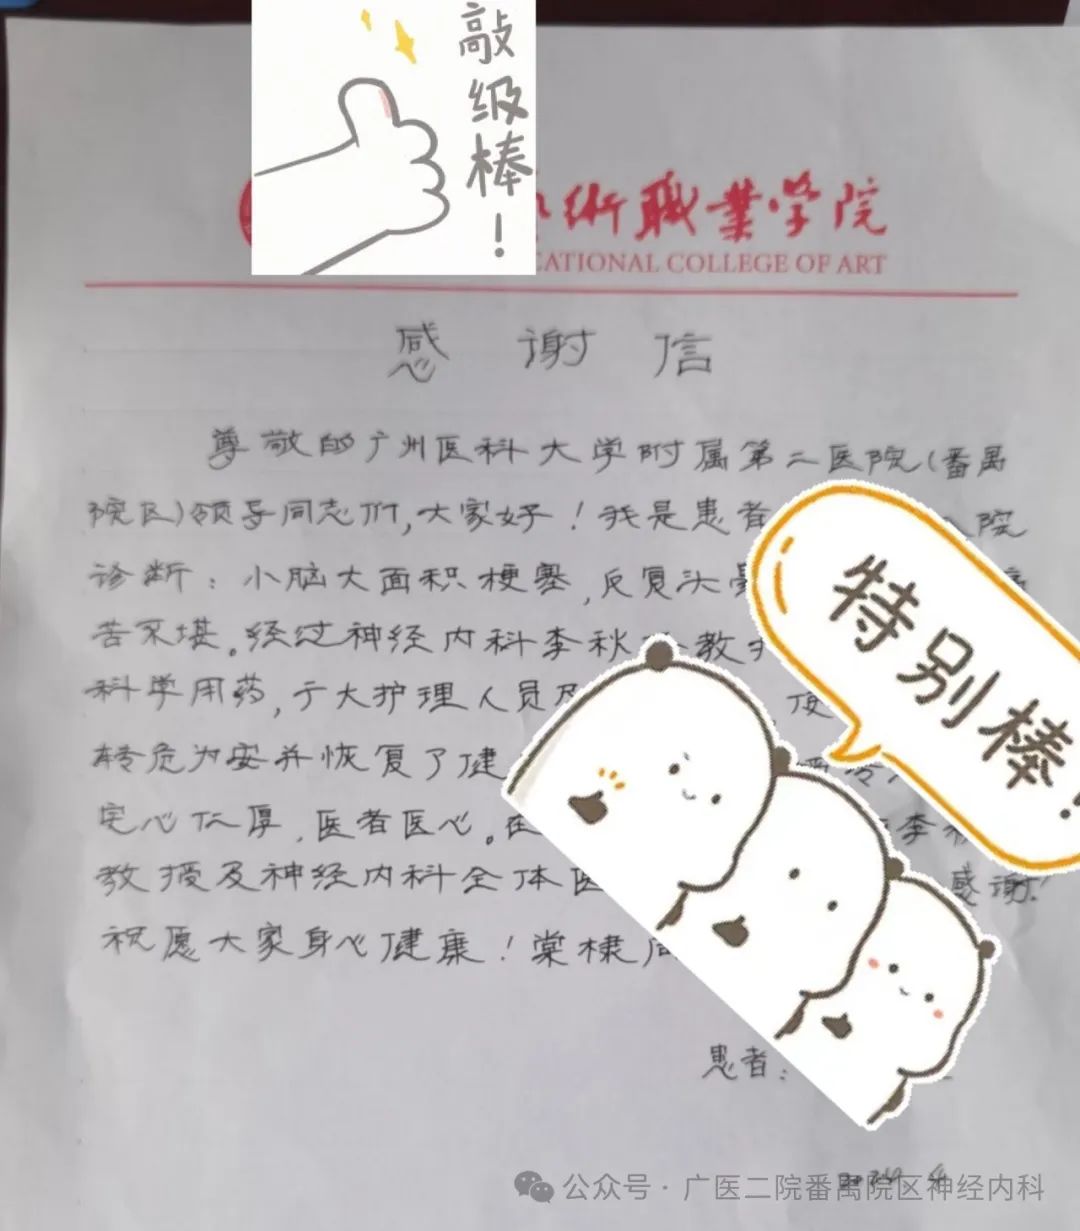 敲级棒！
术職業学院
CATIONAL COLLEGE OF ART
感谢信
尊敬的广州医科大学附属第二医院(番禺
院区)领导同志们,大家好！我是患者 院
诊断：小脑大面积梗塞,反复头晕
苦不堪。经过神经内科李秋 教
科学用药,于大护理人员及 使
转危为安并恢复了健
宅心仁厚,医者医心。在 李秋
教授及神经内科全体医 感谢！
祝愿大家身心健康！棠棣同
特别棒！
患者：
公众号·广医二院番禺院区神经内科